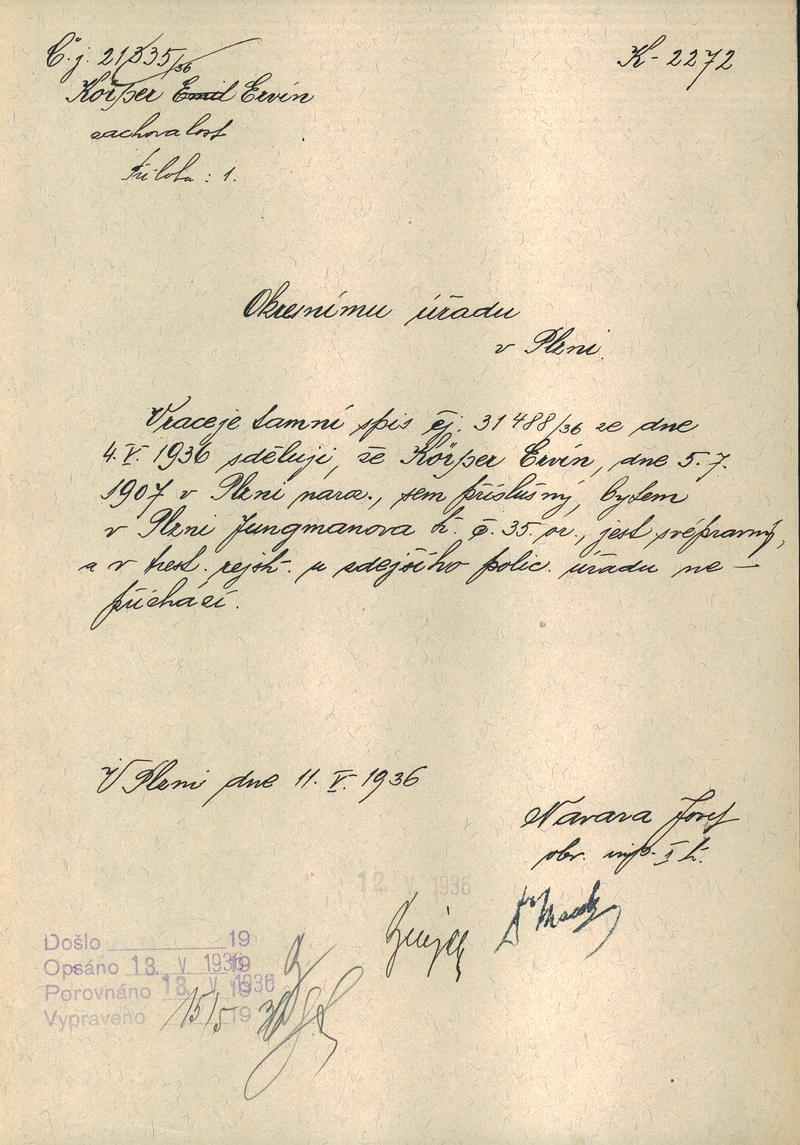 Č.j. 21335/36
K-2272
Körper Emil Ervín
zachovalost
Příloha : 1.
Okresnímu úřadu
v Plzni.
Vraceje tamní spis čj. 31488/36 ze dne
4.V. 1936 sděluji, že Körper Ervín, dne 5.7.
1907 v Plzni naroz., sem příslušný, bytem
v Plzni Jungmanova tř. č. 35. or., jest svéprávný,
a v trest. rejstř. u zdejšího polic. úřadu ne-
přichází.
V Plzni dne 11. V. 1936
Navara Josef
obv. insp. I tř.
12. V 1936
Došlo 19
Opsáno 13. V 1936 19
Porovnáno 13. V 1936 19
Vypraveno 15/5 19